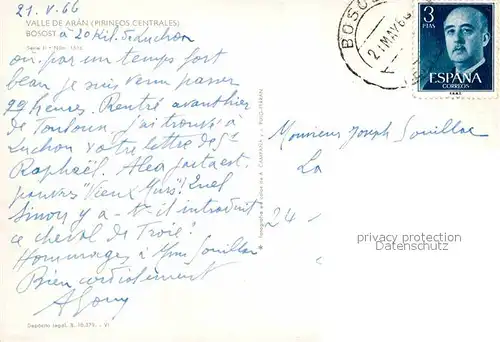 21. V. 66
VALLE DE ARÁN (PIRINEOS CENTRALES)
BOSOST à 20 Kil. de Luchon
Serie II - Núm. 1516
où, par un temps fort
beau, je suis venu passer
heures. Rentré avanthier
de Toulouse, j'ai trouvé à
Luchon votre lettre de St
Raphaël. Alea jacta est.
pauvres "Vieux Murs"! Quel
Sinon y a-t-il introduit
ce cheval de Troie!
Hommages à Mme Souillac
Bien cordialement
Depósito legal, B. 18.379. - VI
BOSOST
21 MAY 66
3
PTAS
ESPAÑA
CORREOS
Monsieur Joseph Souillac
La
24 -
privacy protection
Datenschutz